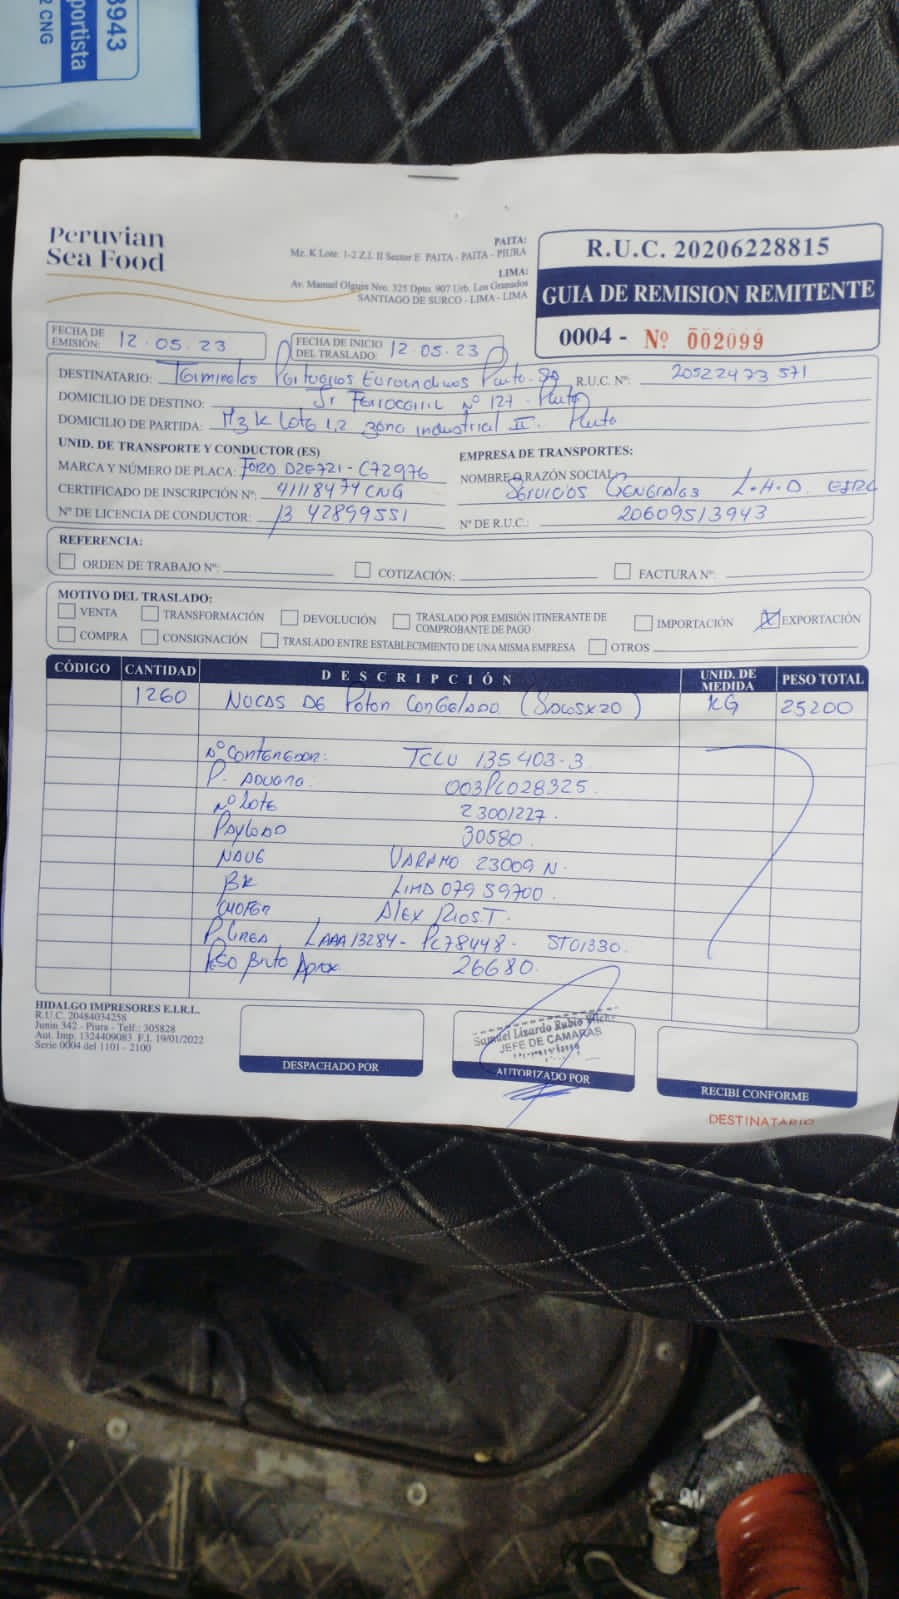 3943
portista
2 CNG
Peruvian
Sea Food
PAITA:
Mz. K Lote. 1-2 Z.I. II Sector E. PAITA - PAITA - PIURA
LIMA:
Av. Manuel Olguin Nro. 325 Dpto. 907 Urb. Los Granados
SANTIAGO DE SURCO - LIMA - LIMA
R.U.C. 20206228815
GUIA DE REMISION REMITENTE
0004 - Nº 002099
FECHA DE EMISIÓN: 12.05.23
FECHA DE INICIO DEL TRASLADO: 12.05.23
DESTINATARIO: Terminales Portuarios Euroandinos Paita-SA R.U.C. Nº: 20522473571
DOMICILIO DE DESTINO: Jr Ferrocarril Nº 127 - Paita
DOMICILIO DE PARTIDA: Mz K Lote 1,2 zona industrial II. Paita
UNID. DE TRANSPORTE Y CONDUCTOR (ES)
EMPRESA DE TRANSPORTES:
MARCA Y NÚMERO DE PLACA: FORD D2E721 - C72976
NOMBRE O RAZÓN SOCIAL: Servicios Generales L.H.D. EIRL
CERTIFICADO DE INSCRIPCIÓN Nº: 41118474 CNG
Nº DE LICENCIA DE CONDUCTOR: B 42899551
Nº DE R.U.C.: 20609513943
REFERENCIA:
ORDEN DE TRABAJO Nº:
COTIZACIÓN:
FACTURA Nº:
MOTIVO DEL TRASLADO:
VENTA
TRANSFORMACIÓN
DEVOLUCIÓN
TRASLADO POR EMISIÓN ITINERANTE DE COMPROBANTE DE PAGO
IMPORTACIÓN
EXPORTACIÓN
COMPRA
CONSIGNACIÓN
TRASLADO ENTRE ESTABLECIMIENTO DE UNA MISMA EMPRESA
OTROS
CÓDIGO CANTIDAD DESCRIPCIÓN UNID. DE MEDIDA PESO TOTAL
1260 Nucas de Poton Congelado (Sacosx20) KG 25200
Nº Contenedor: TCLU 135403-3
P. Aduana: 003PC028325.
Nº Lote 23001227.
Payload 30580.
Nave VARAMO 23009 N.
BK LIMA 07959700.
Chofer Alex Rios T.
P. Linea LAAA13284 - PC78448 - ST01330.
Peso Bruto Aprox. 26680.
HIDALGO IMPRESORES E.I.R.L.
R.U.C. 20484034258
Junin 342 - Piura - Telf.: 305828
Aut. Imp. 1324409083 F.I. 19/01/2022
Serie 0004 del 1101 - 2100
DESPACHADO POR
Samuel Lisardo Rubio
JEFE DE CAMARAS
AUTORIZADO POR
RECIBI CONFORME
DESTINATARIO